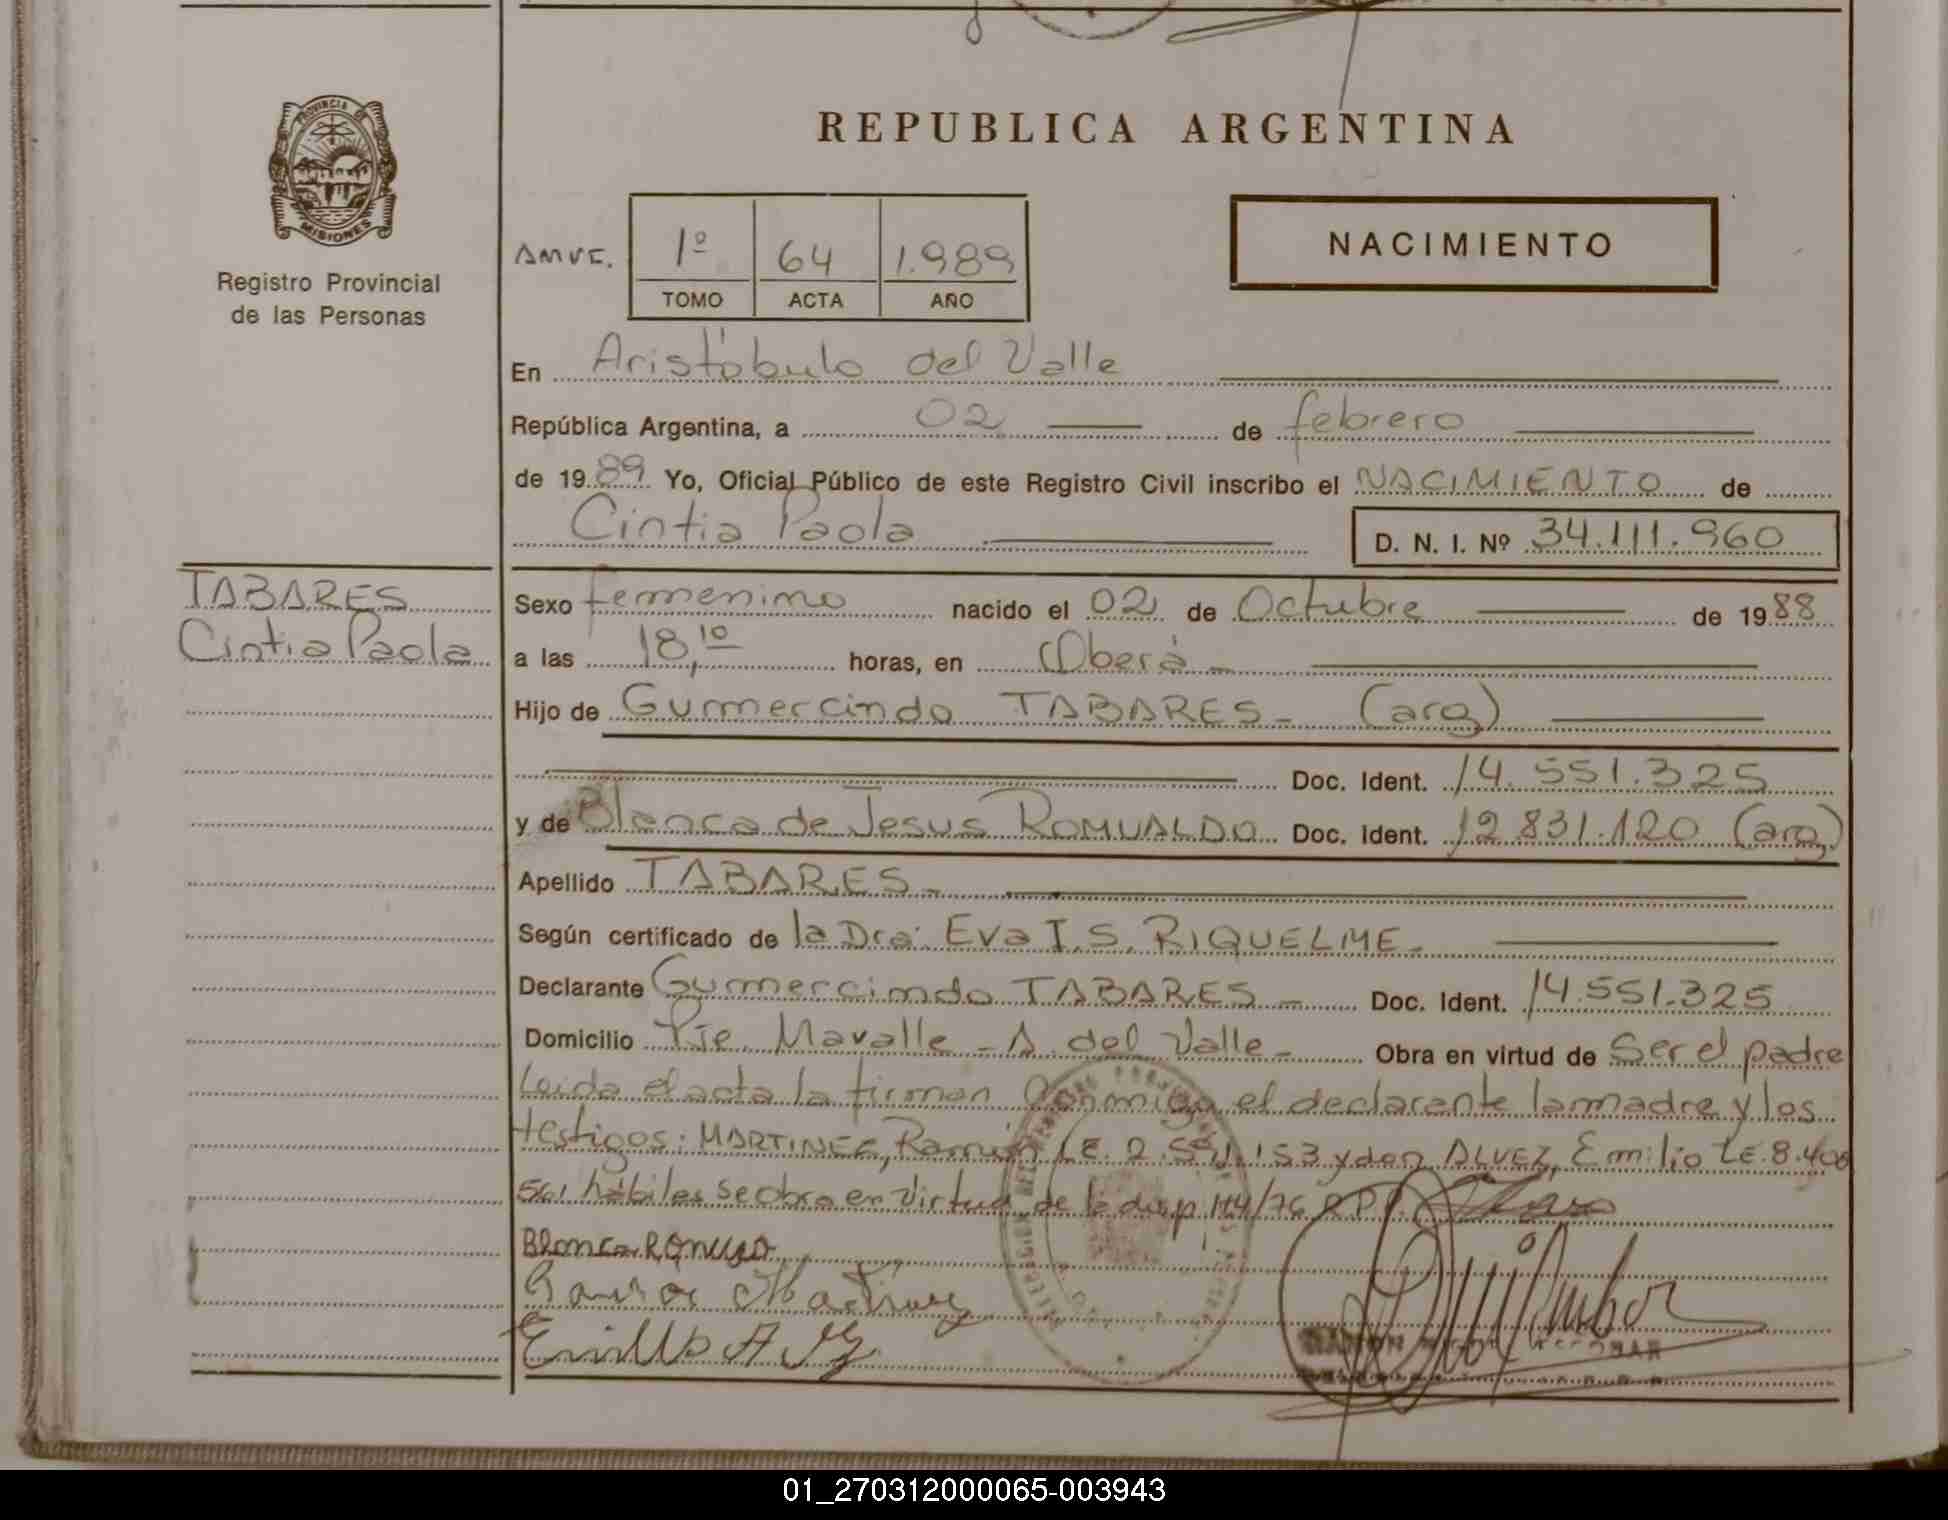 REPUBLICA ARGENTINA
PROVINCIA DE
MISIONES
Registro Provincial
de las Personas
AMVE.
1º 64 1.989
TOMO ACTA AÑO
NACIMIENTO
En Aristóbulo del Valle
República Argentina, a 02 de febrero
de 1989 Yo, Oficial Público de este Registro Civil inscribo el NACIMIENTO de
Cintia Paola D. N. I. Nº 34.111.960
TABARES
Cintia Paola
Sexo femenino nacido el 02 de Octubre de 1988
a las 18,10 horas, en Oberá -
Hijo de Gumercindo TABARES - (arg)
Doc. Ident. 14.551.325
y de Blanca de Jesus ROMUALDO Doc. Ident. 12.831.120 (arg)
Apellido TABARES -
Según certificado de la Dra. Eva I.S. RIQUELME -
Declarante Gumercindo TABARES - Doc. Ident. 14.551.325
Domicilio Pje. Mavalle - A. del Valle - Obra en virtud de Ser el padre
Leida el acta la firman conmigo el declarante la madre y los
testigos: MARTINEZ, Ramón LE. 2.591.153 y don ALVEZ, Emilio LE. 8.406
561 hábiles se obra en virtud de la disp. 114/76 R.P.P.
Blanca Romualdo
Ramon Martinez
Emilio A
RAMON
01_270312000065-003943